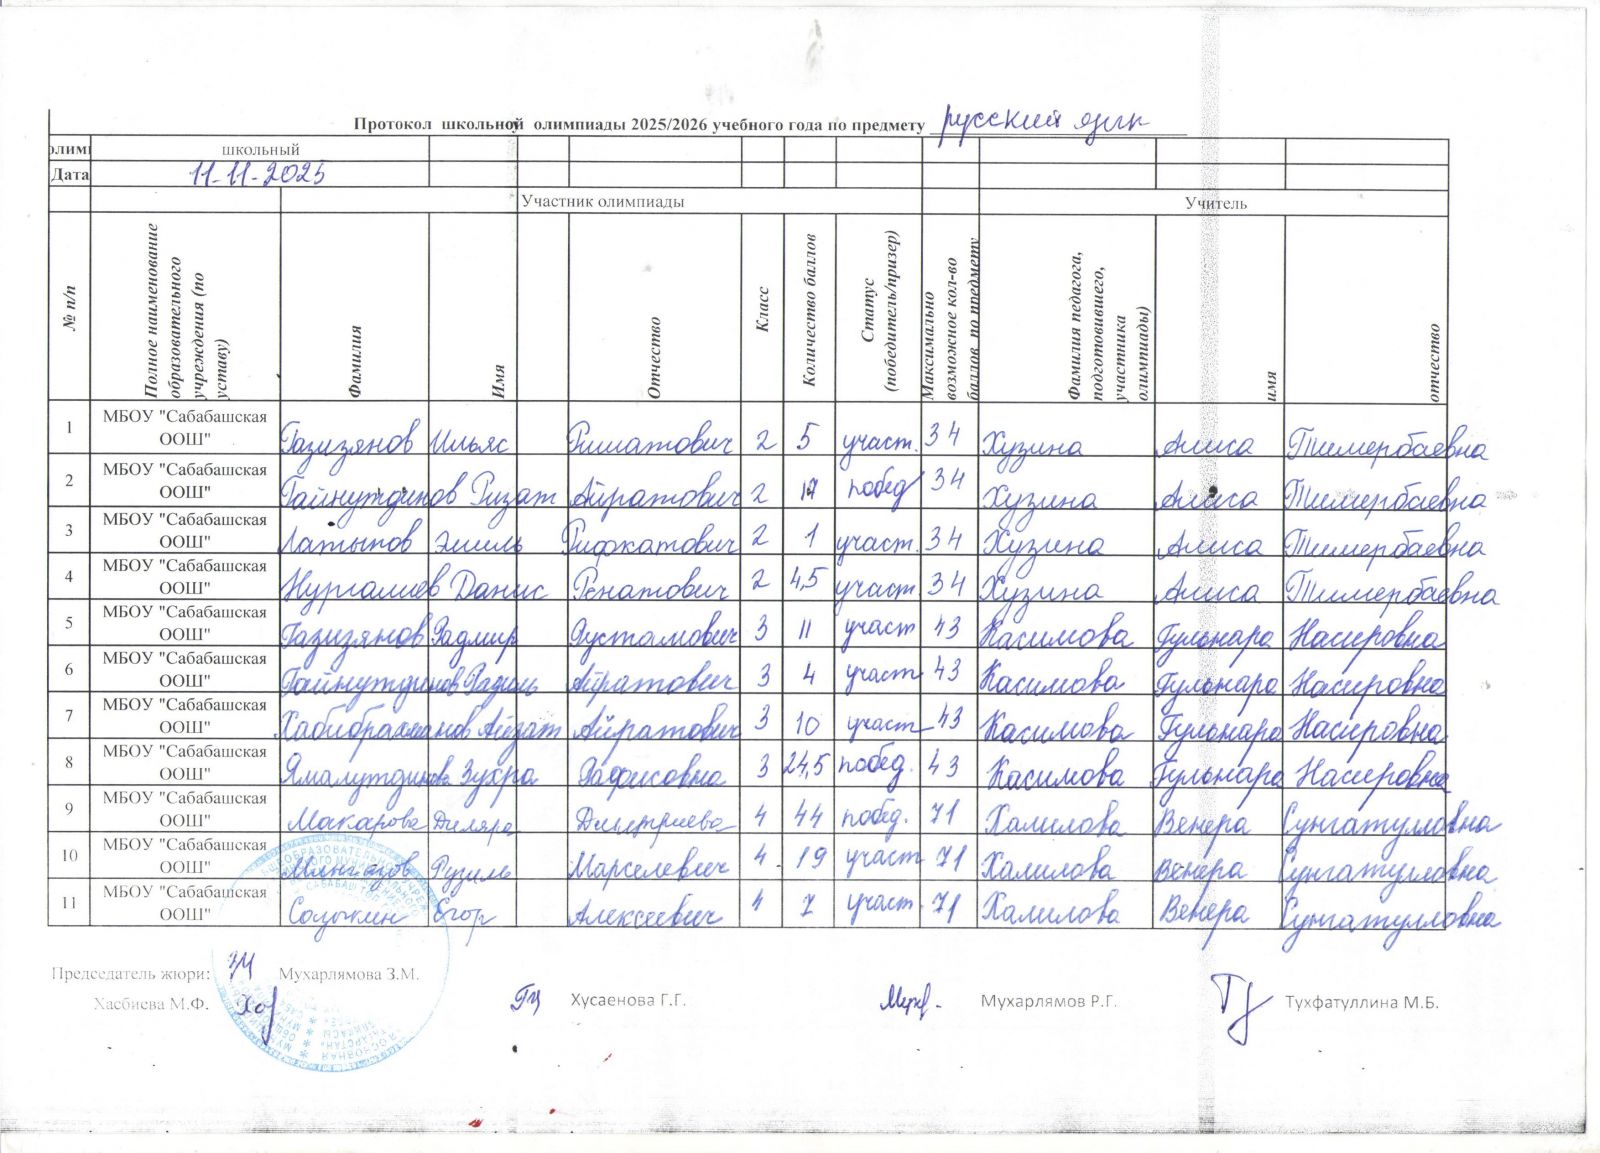 Протокол школьной олимпиады 2025/2026 учебного года по предмету русский язык
олимп школьный
Дата 11.11.2025
Участник олимпиады Учитель
№ п/п Полное наименование образовательного учреждения (по уставу) Фамилия Имя Отчество Класс Количество баллов Статус (победитель/призер) Максимально возможное кол-во баллов по предмету Фамилия педагога, подготовившего, участника олимпиады) имя отчество
1 МБОУ "Сабабашская ООШ" Газизянов Ильяс Ришатович 2 5 участ. 34 Хузина Алиса Тимербаевна
2 МБОУ "Сабабашская ООШ" Гайнутдинов Ризат Айратович 2 17 побед 34 Хузина Алиса Тимербаевна
3 МБОУ "Сабабашская ООШ" Латыпов Эмиль Рифкатович 2 1 участ. 34 Хузина Алиса Тимербаевна
4 МБОУ "Сабабашская ООШ" Нургалиев Данис Ренатович 2 4,5 участ 34 Хузина Алиса Тимербаевна
5 МБОУ "Сабабашская ООШ" Газизянов Радмир Рустамович 3 11 участ 43 Касимова Гульнара Насировна
6 МБОУ "Сабабашская ООШ" Гайнутдинов Радиль Айратович 3 4 участ 43 Касимова Гульнара Насировна
7 МБОУ "Сабабашская ООШ" Хабибрахманов Айзат Айратович 3 10 участ 43 Касимова Гульнара Насировна
8 МБОУ "Сабабашская ООШ" Ямалутдинова Зухра Рафисовна 3 24,5 побед. 43 Касимова Гульнара Насировна
9 МБОУ "Сабабашская ООШ" Макарова Диляра Дмитриева 4 44 побед. 71 Халилова Венера Сунгатулловна
10 МБОУ "Сабабашская ООШ" Рузиль Марселевич 4 19 участ 71 Халилова Венера Сунгатулловна
11 МБОУ "Сабабашская ООШ" Егор Алексеевич 4 7 участ. 71 Халилова Венера Сунгатулловна
Председатель жюри: Мухарлямова З.М.
Хасбиева М.Ф. Хусаенова Г.Г. Мухарлямов Р.Г. Тухфатуллина М.Б.